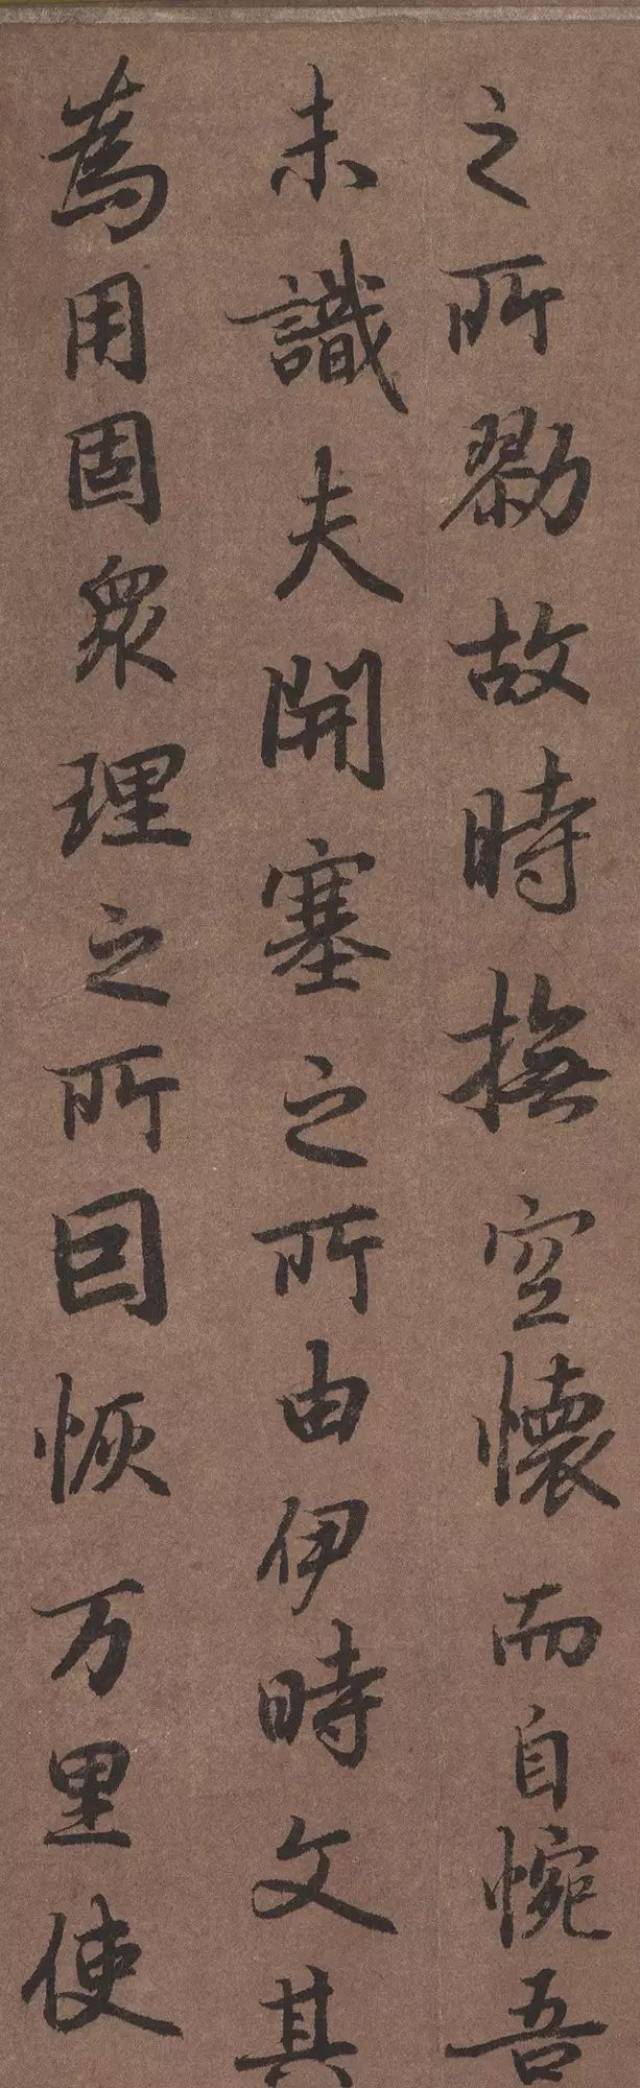 之所勠故時撫空懷而自惋吾
未識夫開塞之所由伊時文其
為用固衆理之所囙恢万里使